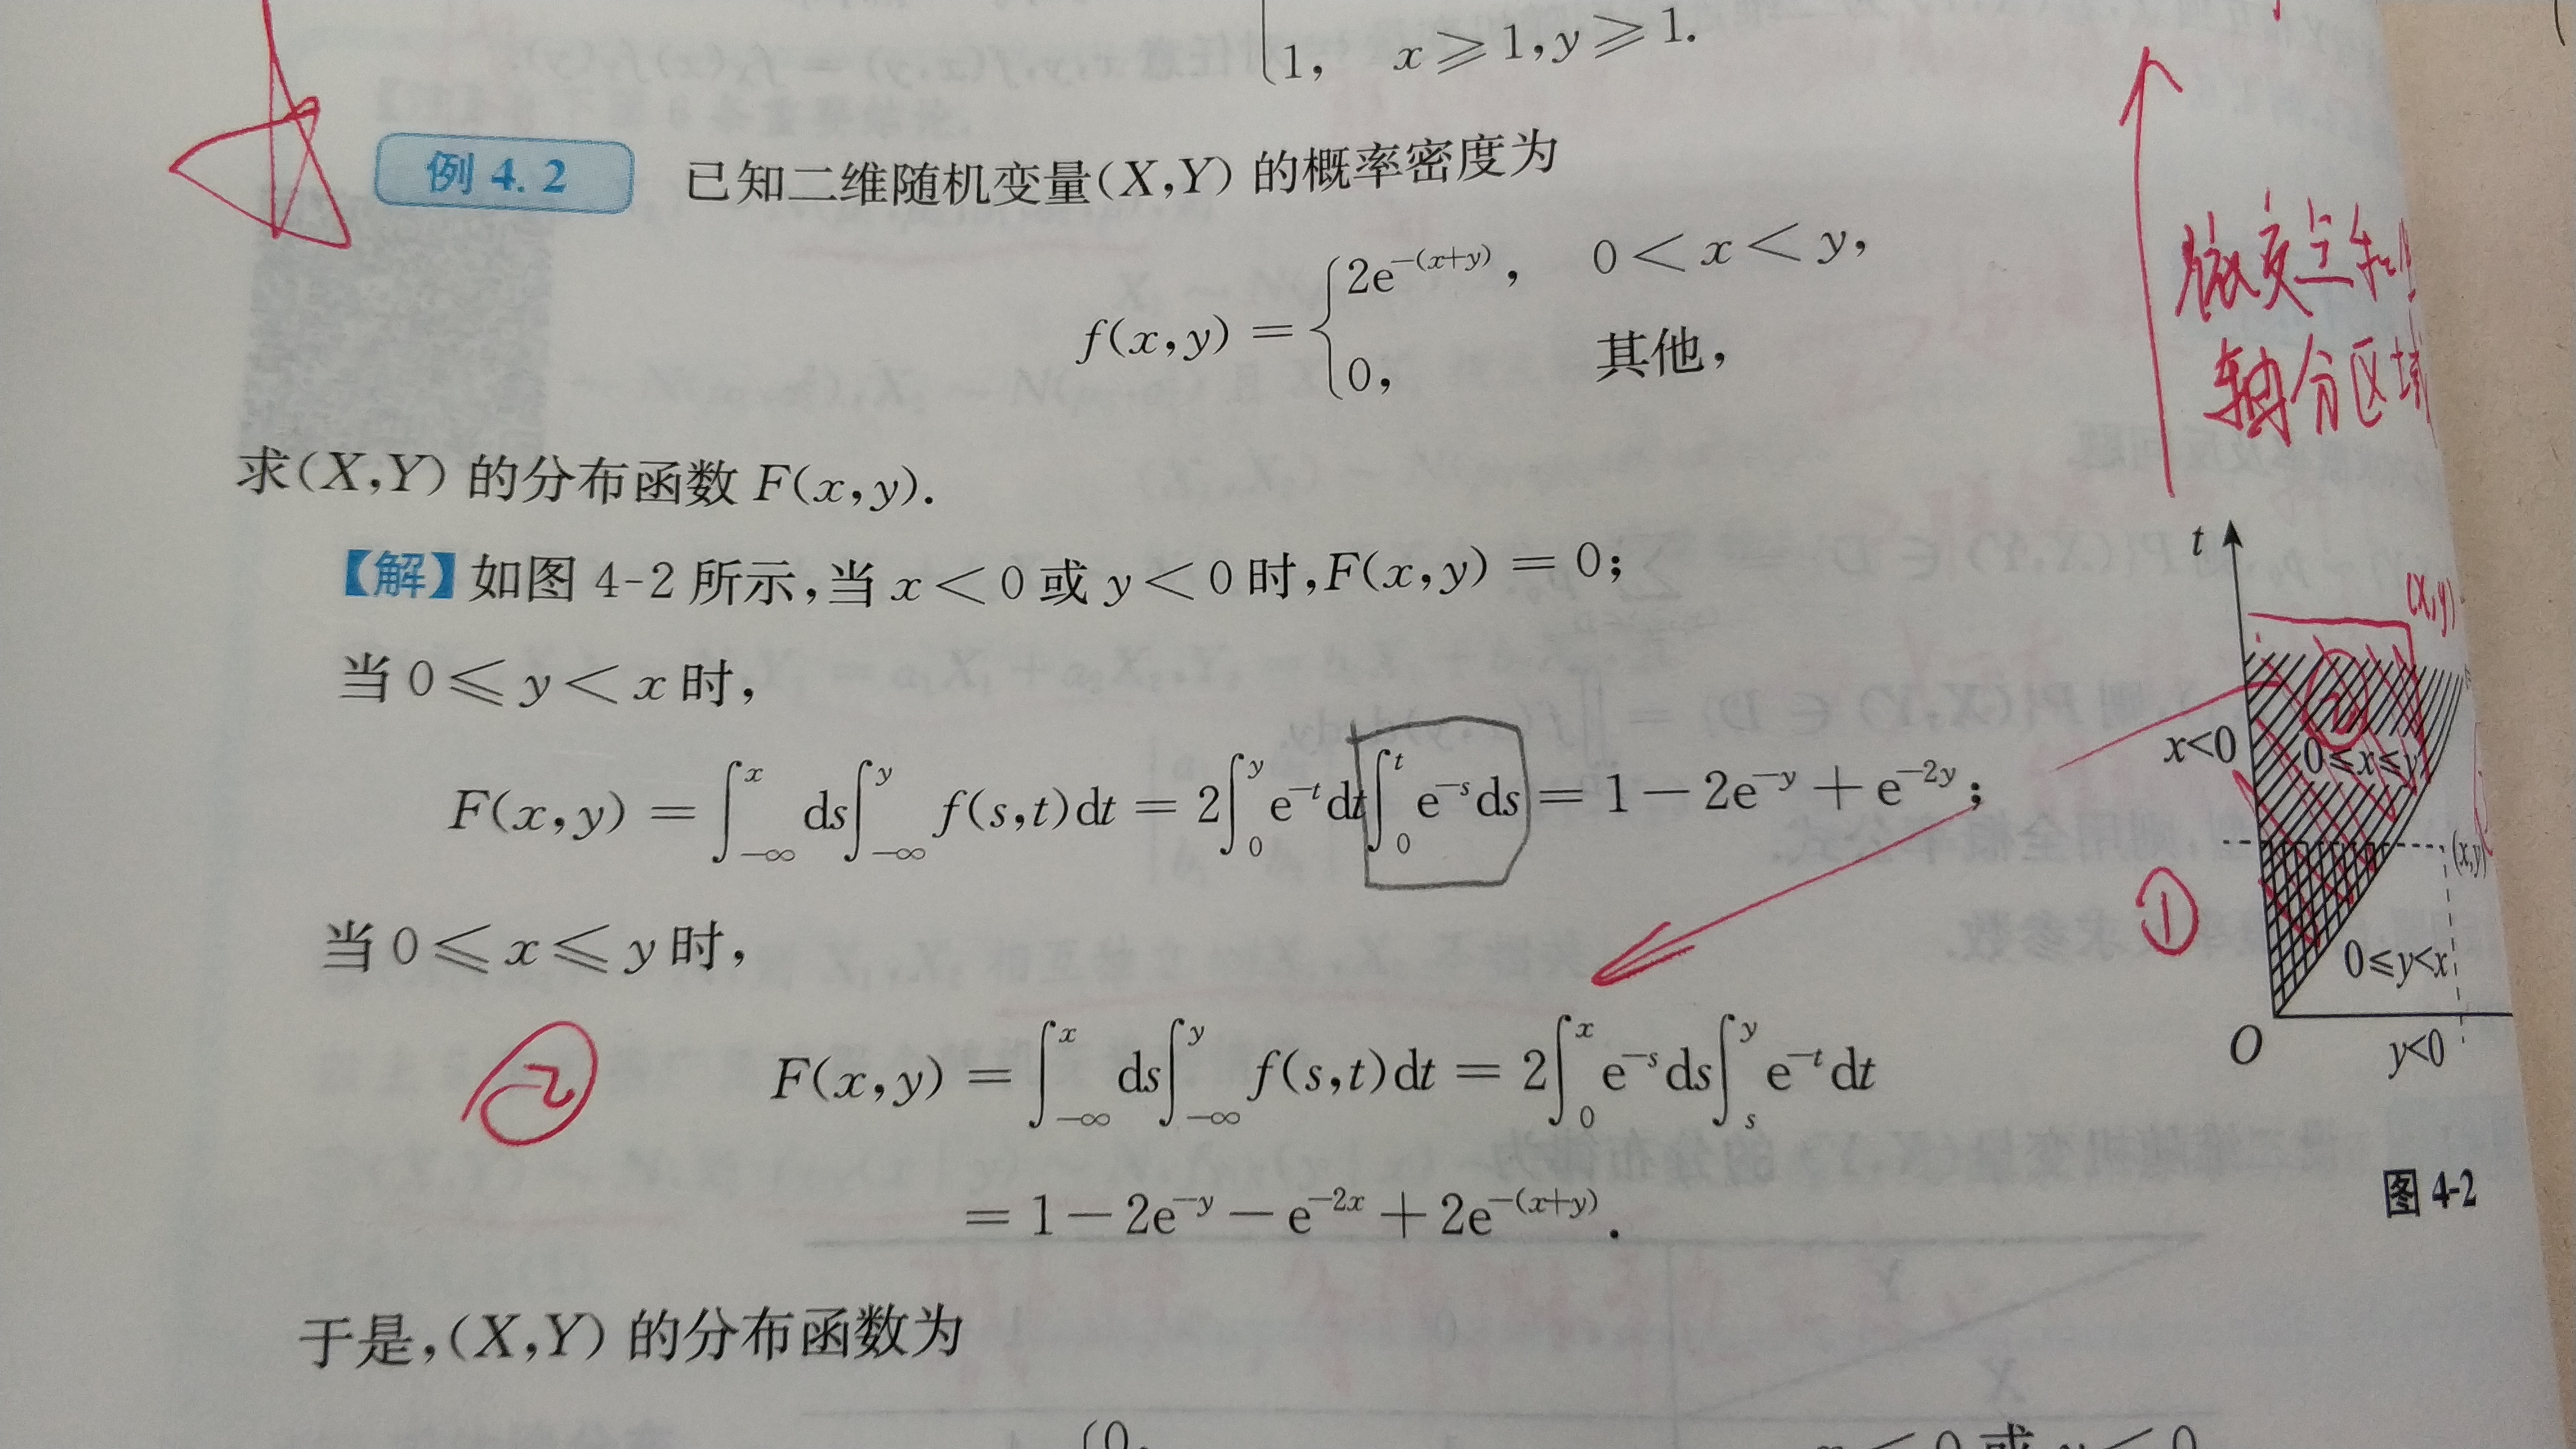 1, x⩾1,y⩾1.
例 4.2 已知二维随机变量(X,Y)的概率密度为
f(x,y) = { 2e^{-(x+y)}, 0<x<y,
0, 其他,
轴分区域
求(X,Y)的分布函数 F(x,y).
【解】如图 4-2 所示,当 x<0 或 y<0 时,F(x,y) = 0;
当 0⩽y<x 时,
F(x,y) = ∫_{-∞}^{x} ds∫_{-∞}^{y} f(s,t)dt = 2∫_{0}^{y} e^{-t}dt∫_{0}^{t} e^{-s}ds = 1-2e^{-y}+e^{-2y};
当 0⩽x⩽y 时,
② F(x,y) = ∫_{-∞}^{x} ds∫_{-∞}^{y} f(s,t)dt = 2∫_{0}^{x} e^{-s}ds∫_{s}^{y} e^{-t}dt
= 1-2e^{-y}-e^{-2x}+2e^{-(x+y)}.
于是,(X,Y)的分布函数为
t
(x,y)
②
x<0
0⩽x⩽y
(x,y)
①
0⩽y<x
O
y<0
图 4-2